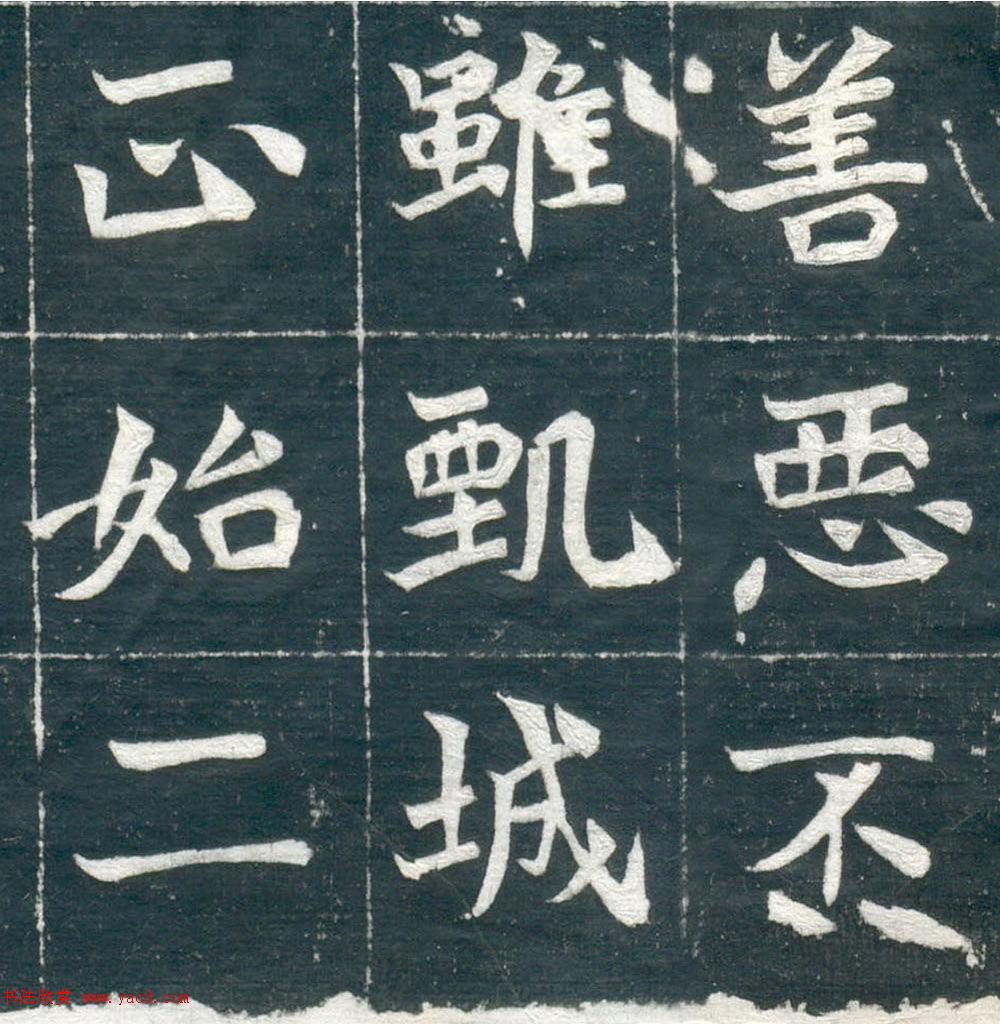 善惡丕
雖甄城
正始二
书法欣赏 www.yac8.com